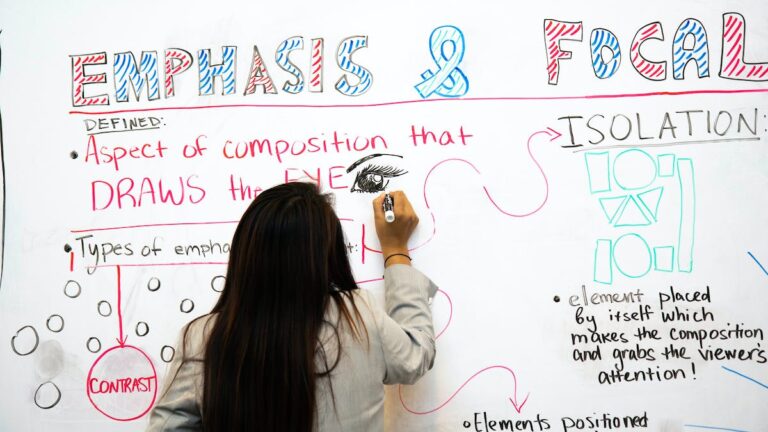 EMPHASIS & FOCAL
DEFINED:
• Aspect of composition that
DRAWS the EYE
• Types of
CONTRAST
ISOLATION:
• element placed
by itself which
makes the composition
and grabs the viewer's
attention!
• Elements positioned